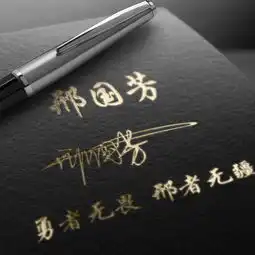 邢国芳
邢国芳
勇者无畏 邢者无疆